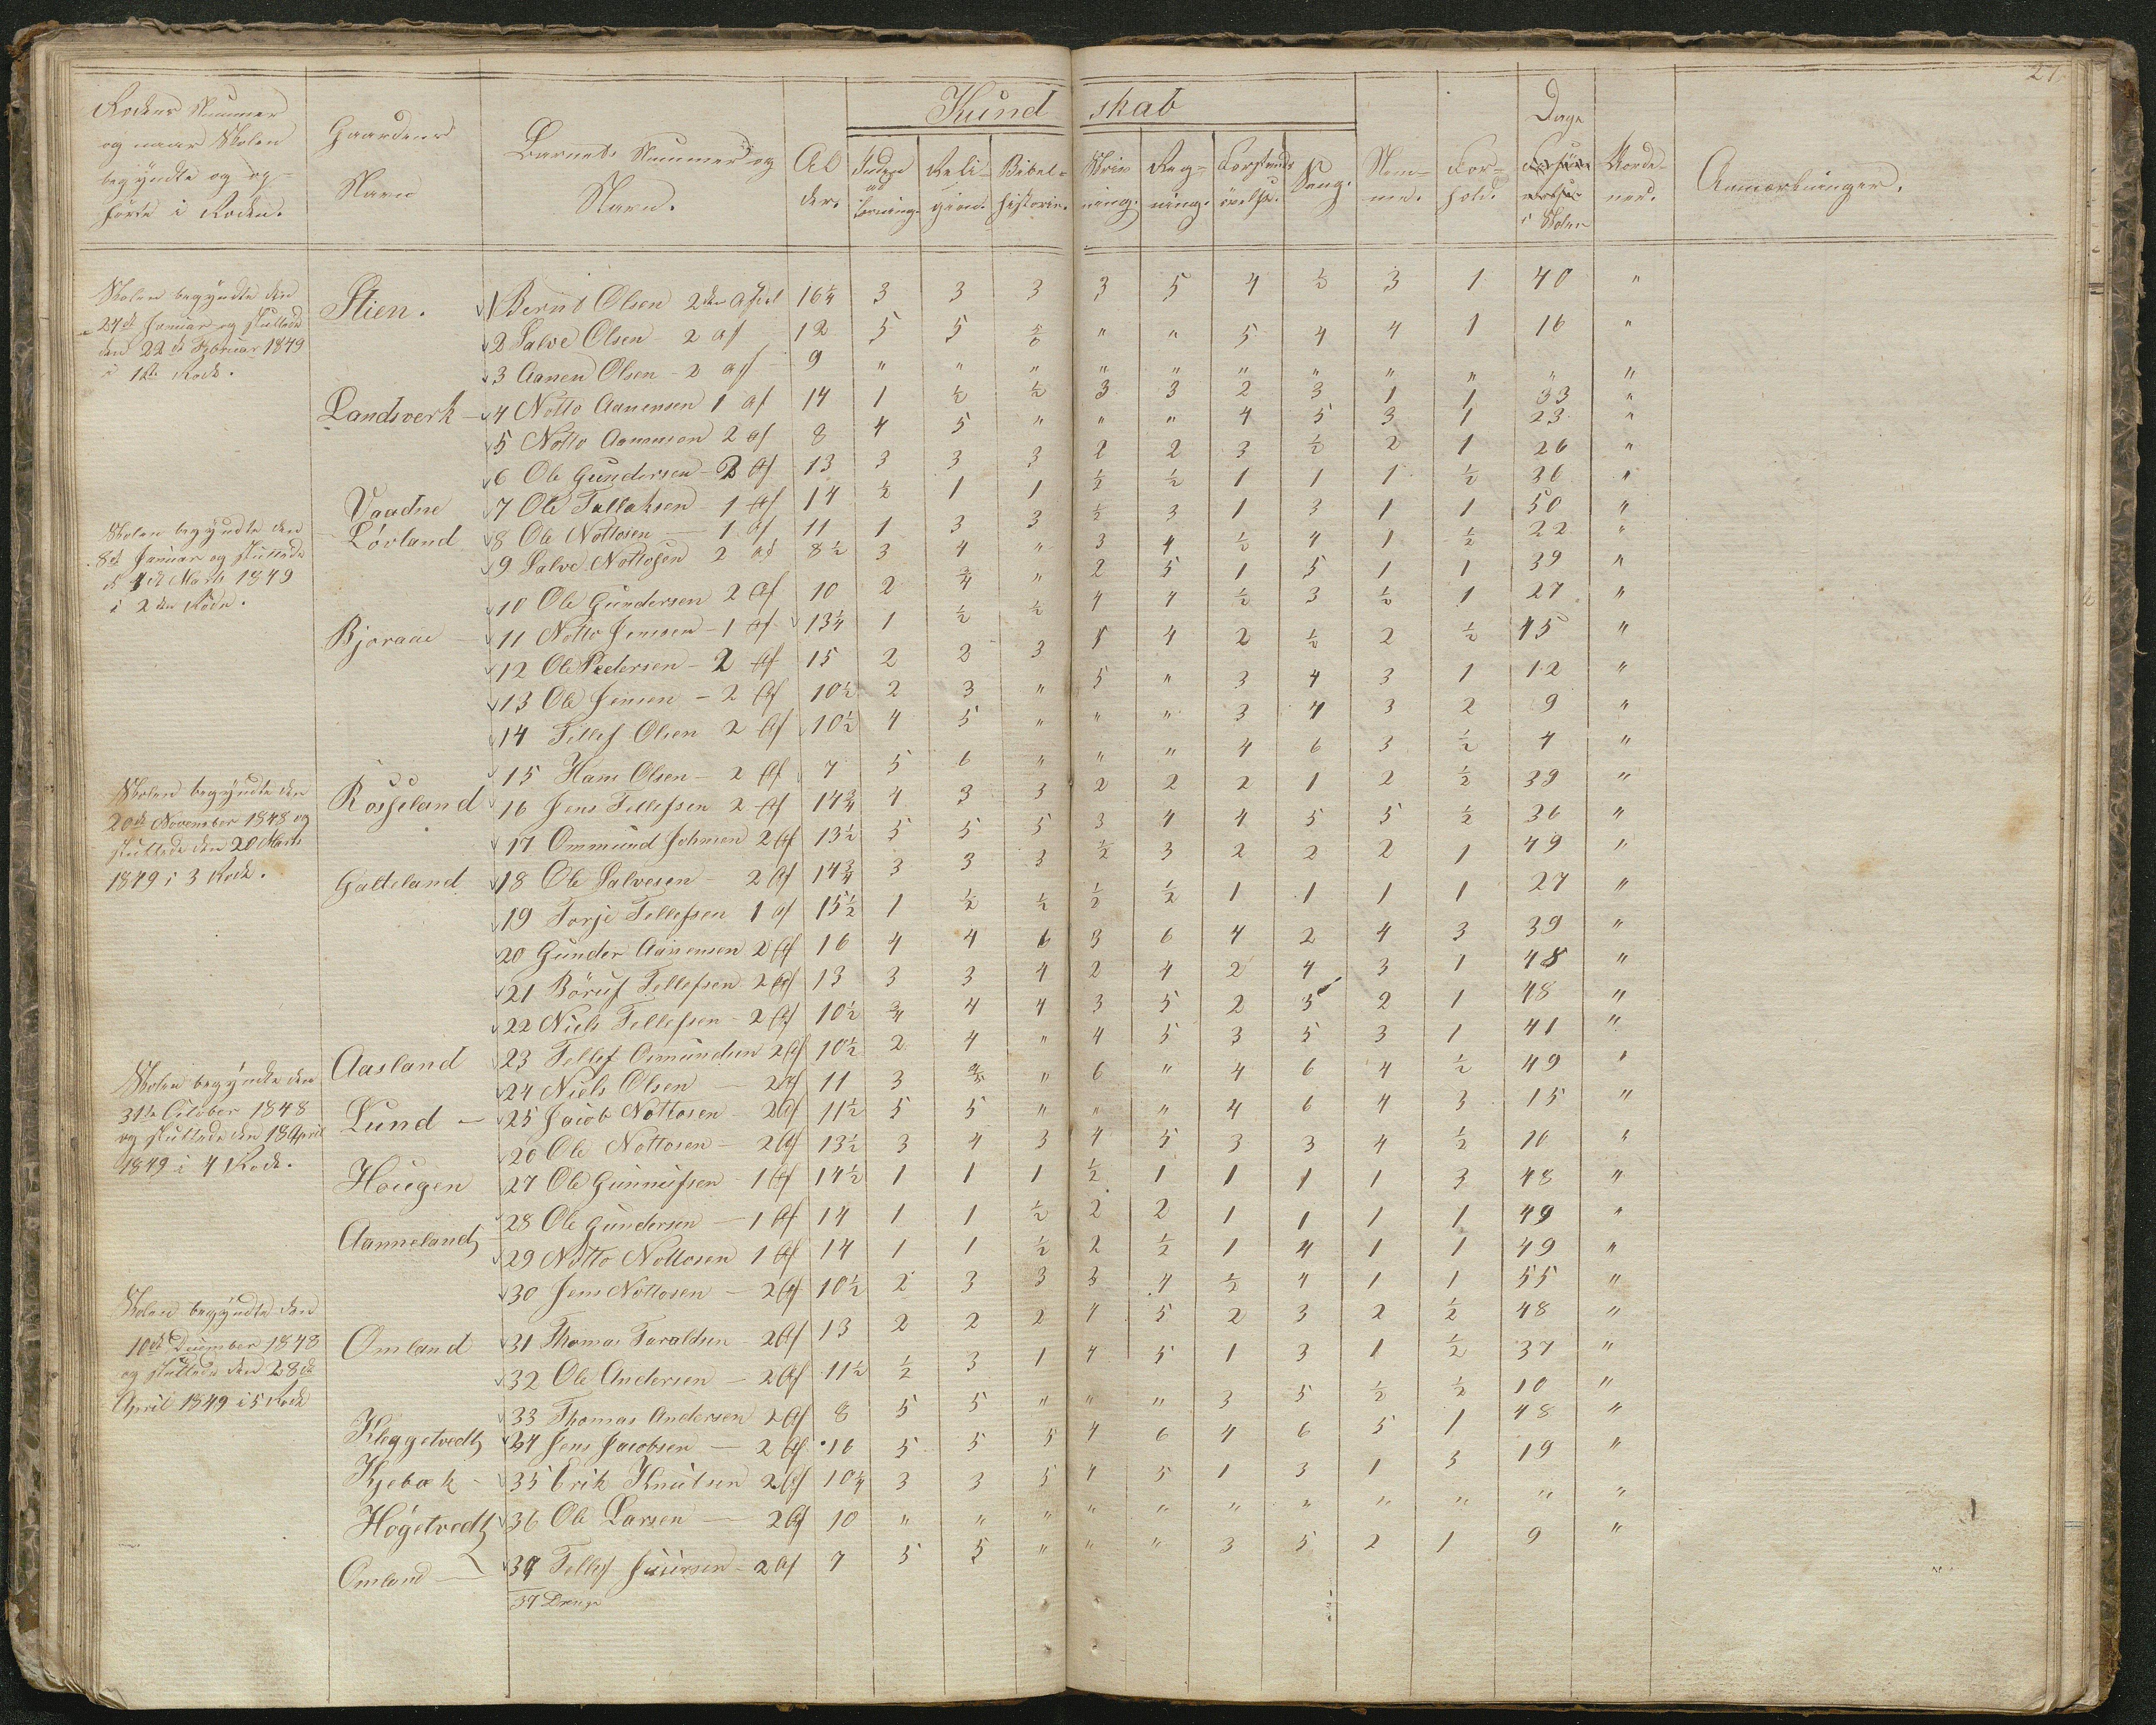 27.
Kundskab
Rodens Nummer og naar Skolen begyndte og op-hørte i Roden.
Gaardens Navn
Barnets Nummer og Navn.
Alder.
Inden ad Læsning.
Religion.
Bibelhistorie.
Skrivning.
Regning.
Forstandsøvelse.
Sang.
Nemme.
Forhold.
Dage i Skolen
Anmærkninger.
Skolen begyndte den
24de Januar og sluttede
den 22de Februar 1849
i 1ste Rode.
Stien. 1 Bernt Olsen 2den Afd 16¼ 3 3 3 3 5 4 ½ 3 1 40 "
2 Salve Olsen - 2 Af 12 5 5 5/6 " " 5 4 4 1 16 "
3 Aanen Olsen - 2 Af 9 " " " " " " " " " " "
Landsverk - 4 Notto Aanensen 1 Af 14 1 ½ ½ 3 3 2 3 1 1 33 "
5 Notto Aanensen 2 Af 8 4 5 " " " 4 5 3 1 23 "
6 Ole Gundersen - 2 Af 13 3 3 3 2 2 3 ½ 2 1 26 "
Vaadne 7 Ole Tallaksen - 1 Af 14 ½ 1 1 ½ ½ 1 1 1 ½ 36 "
Skolen begyndte den
8de Januar og sluttede
d 4de Marts 1849
i 2den Rode.
Løvland 8 Ole Nottosen - 1 Af 11 1 3 3 ½ 3 1 3 1 1 50 "
9 Salve Nottosen 2 Af 8½ 3 4 " 3 4 ½ 4 1 ½ 22 "
10 Ole Gundersen 2 Af 10 2 ¾ " 2 5 1 5 1 1 39 "
Bjoraae - 11 Notto Jensen - 1 Af 13¼ 1 ½ ½ 4 4 ½ 3 ½ 1 27 "
12 Ole Pedersen - 2 Af 15 2 2 3 4 2 ½ 2 ½ 45 "
13 Ole Jensen - 2 Af 10½ 2 3 " 5 " 3 4 3 1 12 "
14 Tellef Olsen 2 Af 10½ 4 5 " " " 3 4 3 2 9 "
15 Hans Olsen - 2 Af 7 5 6 " " " 4 6 3 ½ 4 "
Skolen begyndte den
20de November 1848 og
sluttede den 20 Marts
1849 i 3 Rode.
Rosseland 16 Jens Tellefsen 2 Af 14¾ 4 3 3 2 2 2 1 2 ½ 39 "
17 Ommund Johnsen 2 Af 13½ 5 5 5 3 4 4 5 5 ½ 36 "
Gatteland 18 Ole Salvesen - 2 Af 14¾ 3 3 3 ½ 3 2 2 2 1 49 "
19 Torje Tellefsen 1 Af 15½ 1 ½ ½ ½ ½ 1 1 1 1 27 "
20 Gunder Aanensen 2 Af 16 4 4 6 3 6 4 2 4 3 39 "
21 Børuf Tellefsen 2 Af 13 3 3 4 2 4 2 4 3 1 48 "
22 Niels Tellefsen - 2 Af 10½ ¾ 4 4 3 5 2 5 2 1 48 "
Aasland 23 Tellef Omundsen 2 Af 10½ 2 4 " 4 5 3 5 3 1 41 "
24 Niels Olsen - 2 Af 11 3 4/5 " 6 " 4 6 4 ½ 49 "
Skolen begyndte den
31te October 1848
og sluttede den 18 April
1849 i 4 Rode.
Lund - 25 Jacob Nottosen - 2 Af 11½ 5 5 " " " 4 6 4 3 15 "
26 Ole Nottosen - 2 Af 13½ 3 4 3 4 5 3 3 4 ½ "
Hougen 27 Ole Gunnufsen - 1 Af 14½ 1 1 1 ½ 1 1 1 1 3 48 "
28 Ole Gundersen - 1 Af 14 1 1 ½ 2 2 1 1 1 1 49 "
Aanneland 29 Notto Nottosen 1 Af 14 1 1 ½ 2 ½ 1 4 1 1 49 "
30 Jens Nottosen - 2 Af 10½ 2 3 3 3 4 ½ 4 1 1 55 "
Skolen begyndte den
10de December 1848
og sluttede den 28de
April 1849 i 5 Rode
Omland 31 Thomas Taraldsen - 2 Af 13 2 2 2 4 5 2 3 2 ½ 48 "
32 Ole Andersen - 2 Af 11½ ½ 3 1 4 5 1 3 1 ½ 37 "
33 Thomas Andersen 2 Af 8 5 5 " " " 3 5 ½ ½ 10 "
Kleggetvedt 34 Jens Jacobsen - 2 Af 16 5 5 5 4 6 4 6 5 1 48 "
Kjebæk - 35 Erik Knutsen 2 Af 10¼ 3 3 5 4 5 1 3 1 3 19 "
Høgetvedt 36 Ole Larsen - 2 Af 10 " " " " " " " " " " "
Omland - 37 Tellef - 2 Af 7 5 5 " " " 3 5 2 1 9 "
37 Drenge